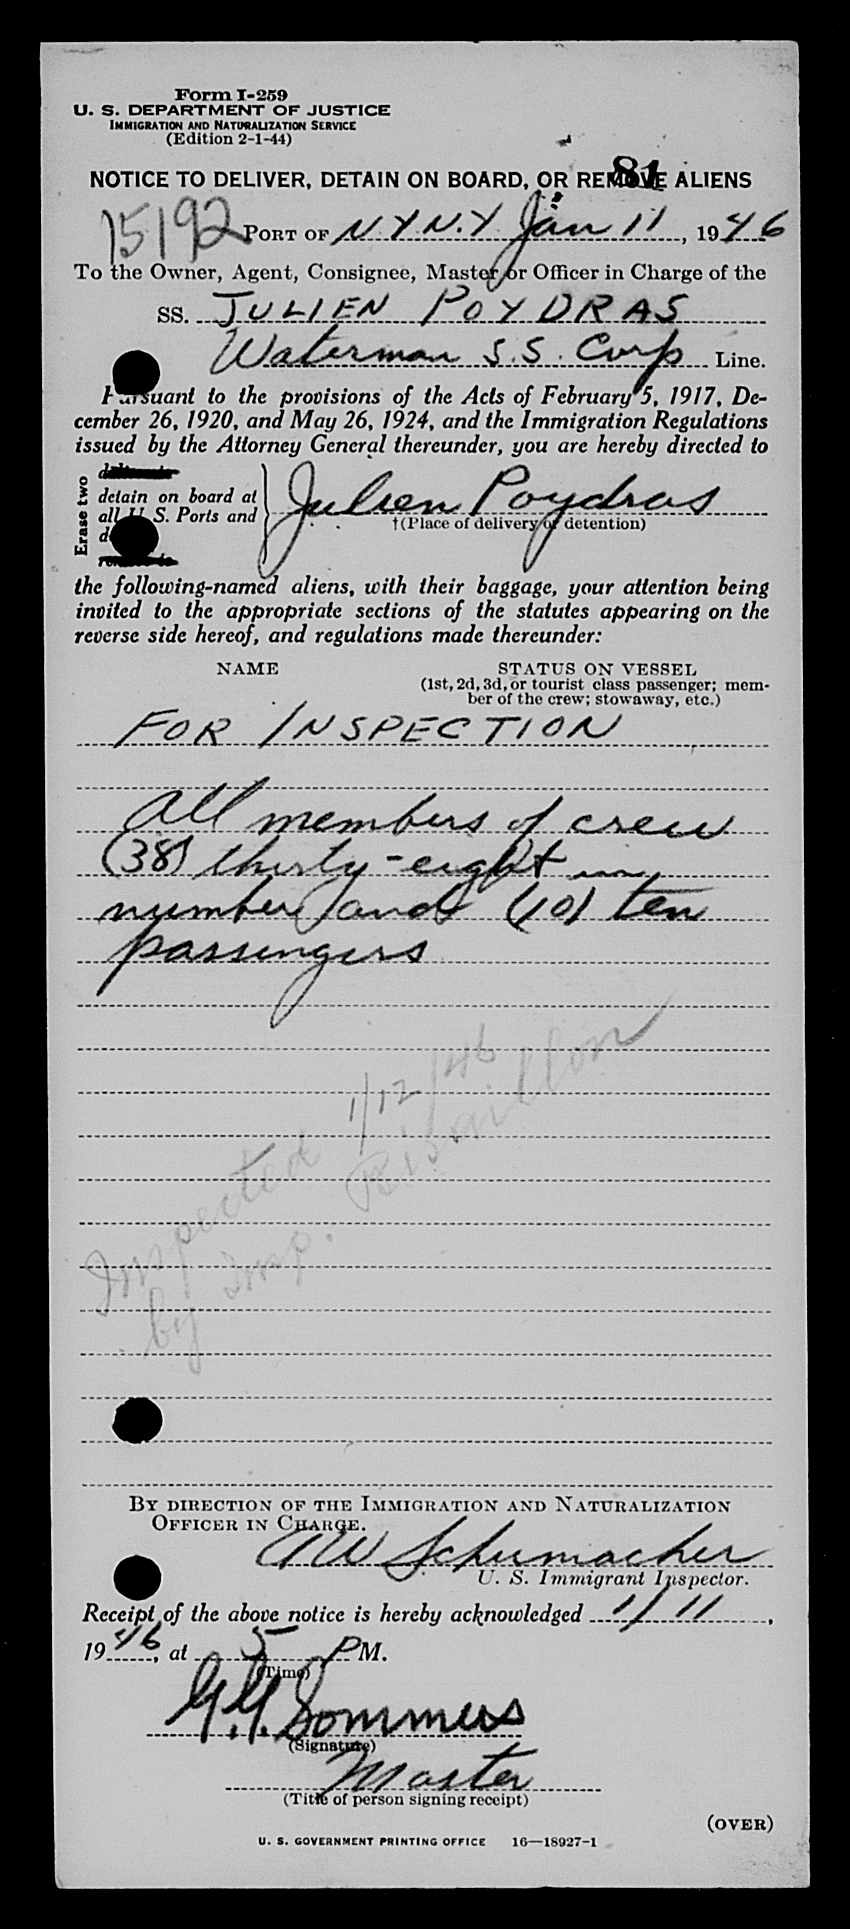 Form I-259
U. S. DEPARTMENT OF JUSTICE
IMMIGRATION AND NATURALIZATION SERVICE
(Edition 2-1-44)
81
NOTICE TO DELIVER, DETAIN ON BOARD, OR REMOVE ALIENS
15192
PORT OF N.Y. N.Y. Jan 11, 1946
To the Owner, Agent, Consignee, Master or Officer in Charge of the
SS. JULIEN POYDRAS
Waterman S.S. Corp Line.
Pursuant to the provisions of the Acts of February 5, 1917, De-
cember 26, 1920, and May 26, 1924, and the Immigration Regulations
issued by the Attorney General thereunder, you are hereby directed to
Erase two
detain on board at
all U. S. Ports and
Julien Poydras
†(Place of delivery or detention)
the following-named aliens, with their baggage, your attention being
invited to the appropriate sections of the statutes appearing on the
reverse side hereof, and regulations made thereunder:
NAME STATUS ON VESSEL
(1st, 2d, 3d, or tourist class passenger; mem-
ber of the crew; stowaway, etc.)
FOR INSPECTION
All members of crew
(38) thirty-eight in
number and (10) ten
passengers
Inspected 1/12/46
by Insp.
BY DIRECTION OF THE IMMIGRATION AND NATURALIZATION
OFFICER IN CHARGE.
A W Schumacher
U. S. Immigrant Inspector.
Receipt of the above notice is hereby acknowledged 1/11,
1946, at 5 PM.
(Time)
G.Y. Sommers
(Signature)
Master
(Title of person signing receipt)
(OVER)
U. S. GOVERNMENT PRINTING OFFICE 16—18927-1